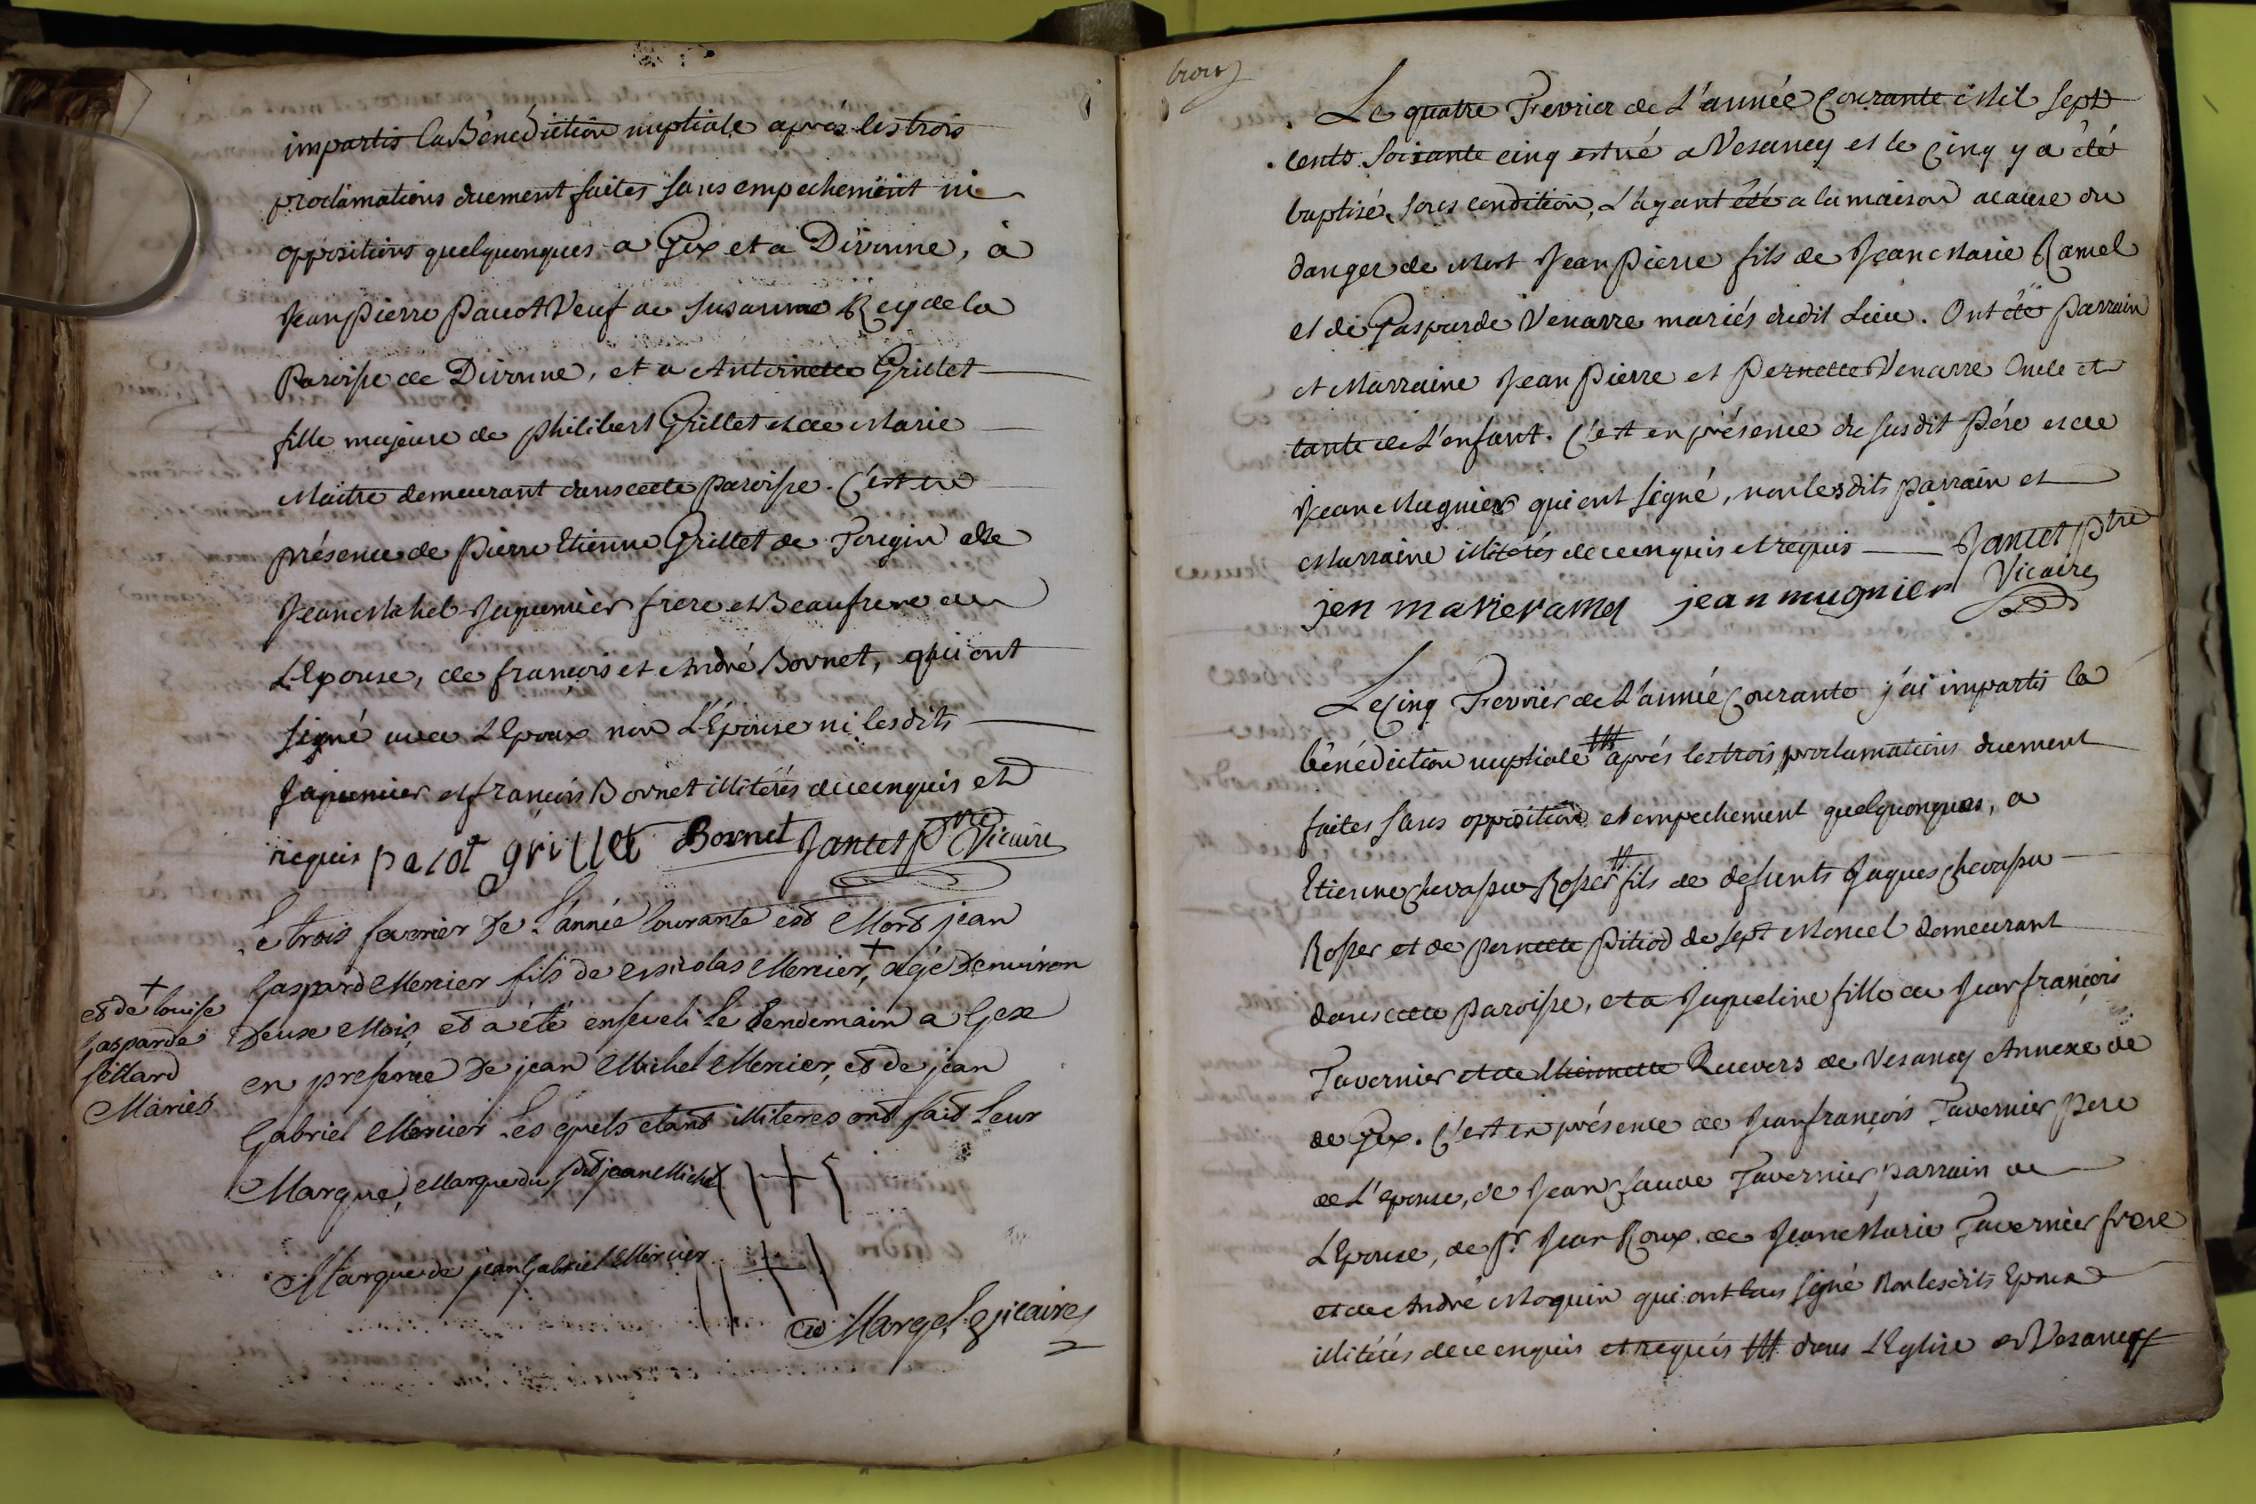 impartis la Bénédiction nuptiale aprés les trois
proclamations duement faites sans empechement ni
oppositions quelquonques a Gex et a Divonne, à
Jean Pierre Pacot Veuf de Susanne Rey de la
Paroisse de Divonne, et a Antoinette Grillet
fille majeure de Philibert Grillet et de Marie
Maitre demeurant dans cette paroisse. C'est en
présence de Pierre Etienne Grillet de Tougin et de
Jean Michel Jaquemier frere et Beaufrere de
L'Epouse, de françois et André Bornet, qui ont
signé avec L'Epoux non L'Epouse ni lesdits
Jaquemier et françois Bornet illiterés de ce enquis et
requis pacot grillet Bornet Jantet Ptre Vicaire
Le trois fevrier de L'année Courante est Mort jean
Gaspard Mercier fils de Nicolas Mercier, + agé denviron
deux Mois, et a été enseveli Le Lendemain a Gex
en presence de jean Michel Mercier, et de jean
Gabriel Mercier Les quels etant illiteres ont fait Leur
Marque, Marque du sdt jean Michel
Marque de jean Gabriel Mercier
Marge Vicaire
+
et de louise
gasparde
Maries
trois
Le quatre Fevrier de L'année Courante Mil Sept
cents Soixante cinq est né a Vesancy et le Cinq y a été
baptisé, sous condition, L'ayant été a la maison acause du
danger de Mort Jean Pierre fils de Jean Marie Ramel
et de Gasparde Venarre mariés dudit Lieu. Ont été Parrain
et Marraine Jean Pierre et Pernette Venarre Oncle et
tante de L'enfant. C'est en présence du susdit Pére et de
Jean Mugnier qui ont signé, non lesdits parrain et
Marraine illitérés de ce enquis et requis Jantet Ptre
Vicaire
jen marie ramel jean mugnier
Le Cinq Fevrier de L'année Courante j'ai impartis la
bénédiction nuptiale ## aprés les trois proclamations duement
faites sans opposition et empechement quelquonques, a
Etienne Chevassu Rosset # fils de defunts Jaques Chevassu
Rosset et de Pernette Pitiod de Sept Moncel demeurant
dans cette Paroisse, et a Jaqueline fille de Jean françois
Tavernier et de Etiennette Ruevers de Vesancy Annexe de
de Gex. C'est en présence de Jean françois Tavernier pere
de L'epouse, de Jean Claude Tavernier parrain de
L'Epouse, de Sr. Jean Roux, de Jean Marie Tavernier frere
et de André Moquin qui ont tous signé Non lesdits Epoux
illitérés de ce enquis et requis ## dans L'Eglise de Vesancy